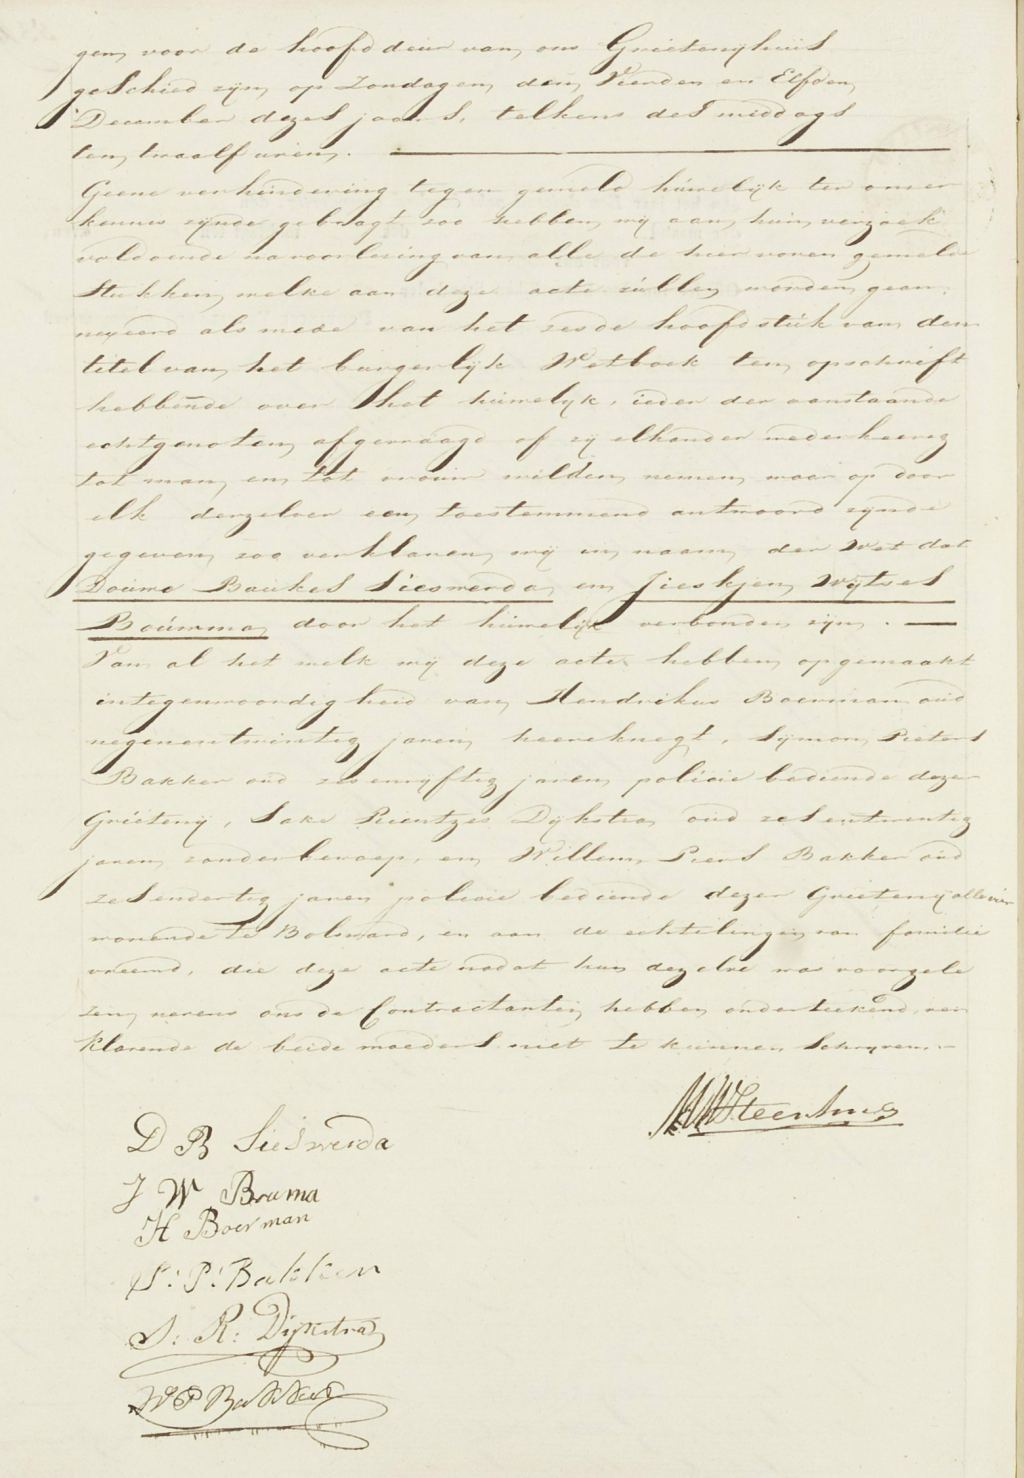 gen, voor de hoofddeur van, ons Grietenijhuis
geschied zijn, op Zondagen, den, Vierden en Elfden,
December dezes jaars, telkens des middags
ten, twaalf uren,.
Geene verhindering tegen gemeld huwelijk ter onzer
kennis zijnde gebragt zoo hebben, wij aan, hun, verzoek
voldoende na voorlezing van, alle de hier voren gemelde
Stukken, welke aan deze acte zullen, worden, gean,
nexeerd als mede van het zesde hoofdstuk van, den
titel van, het burgerlijk Wetboek ten, opschrift
hebbende over het huwelijk, ieder der aanstaande
echtgenoten, afgevraagd of zij elkander
tot man, en, tot vrouw wilden, nemen, waar op door
elk derzelver een, toestemmend antwoord zynde
gegeven, zoo verklaren, wij in, naam, der Wet dat
Douwe Baukes Sieswerda, en, Jieskjen, Wytses
Bouwma, door het huwelijk verbonden zijn,.
Van, al het welk wij deze acte hebben, opgemaakt
in tegenwoordigheid van, Hendrikus Boerman oud
negenentwintig jaren, heereknegt, Symon, Pieters
Bakker oud zesenvyftig jaren, policie bediende dezer
Grietenij, Sake Rientzes Dijkstra, oud zesentwentig
jaren, zonder beroep, en, Willem, Piers Bakker oud
zesendertig jaren policie bediende dezer Grietenij alle vier
wonende te Bolsward, en aan de echtelingen van familie
vreemd, die deze acte nadat hun dezelve was voorgele
zen, nevens ons de Contractanten, hebben, onderteekend, ver
klarende de beide moeders niet te kunnen Schryven.
D B Sieswerda
J W Bouma
H Boerman
S: P: Bakker
S: R: Dijkstra
W P Bakker